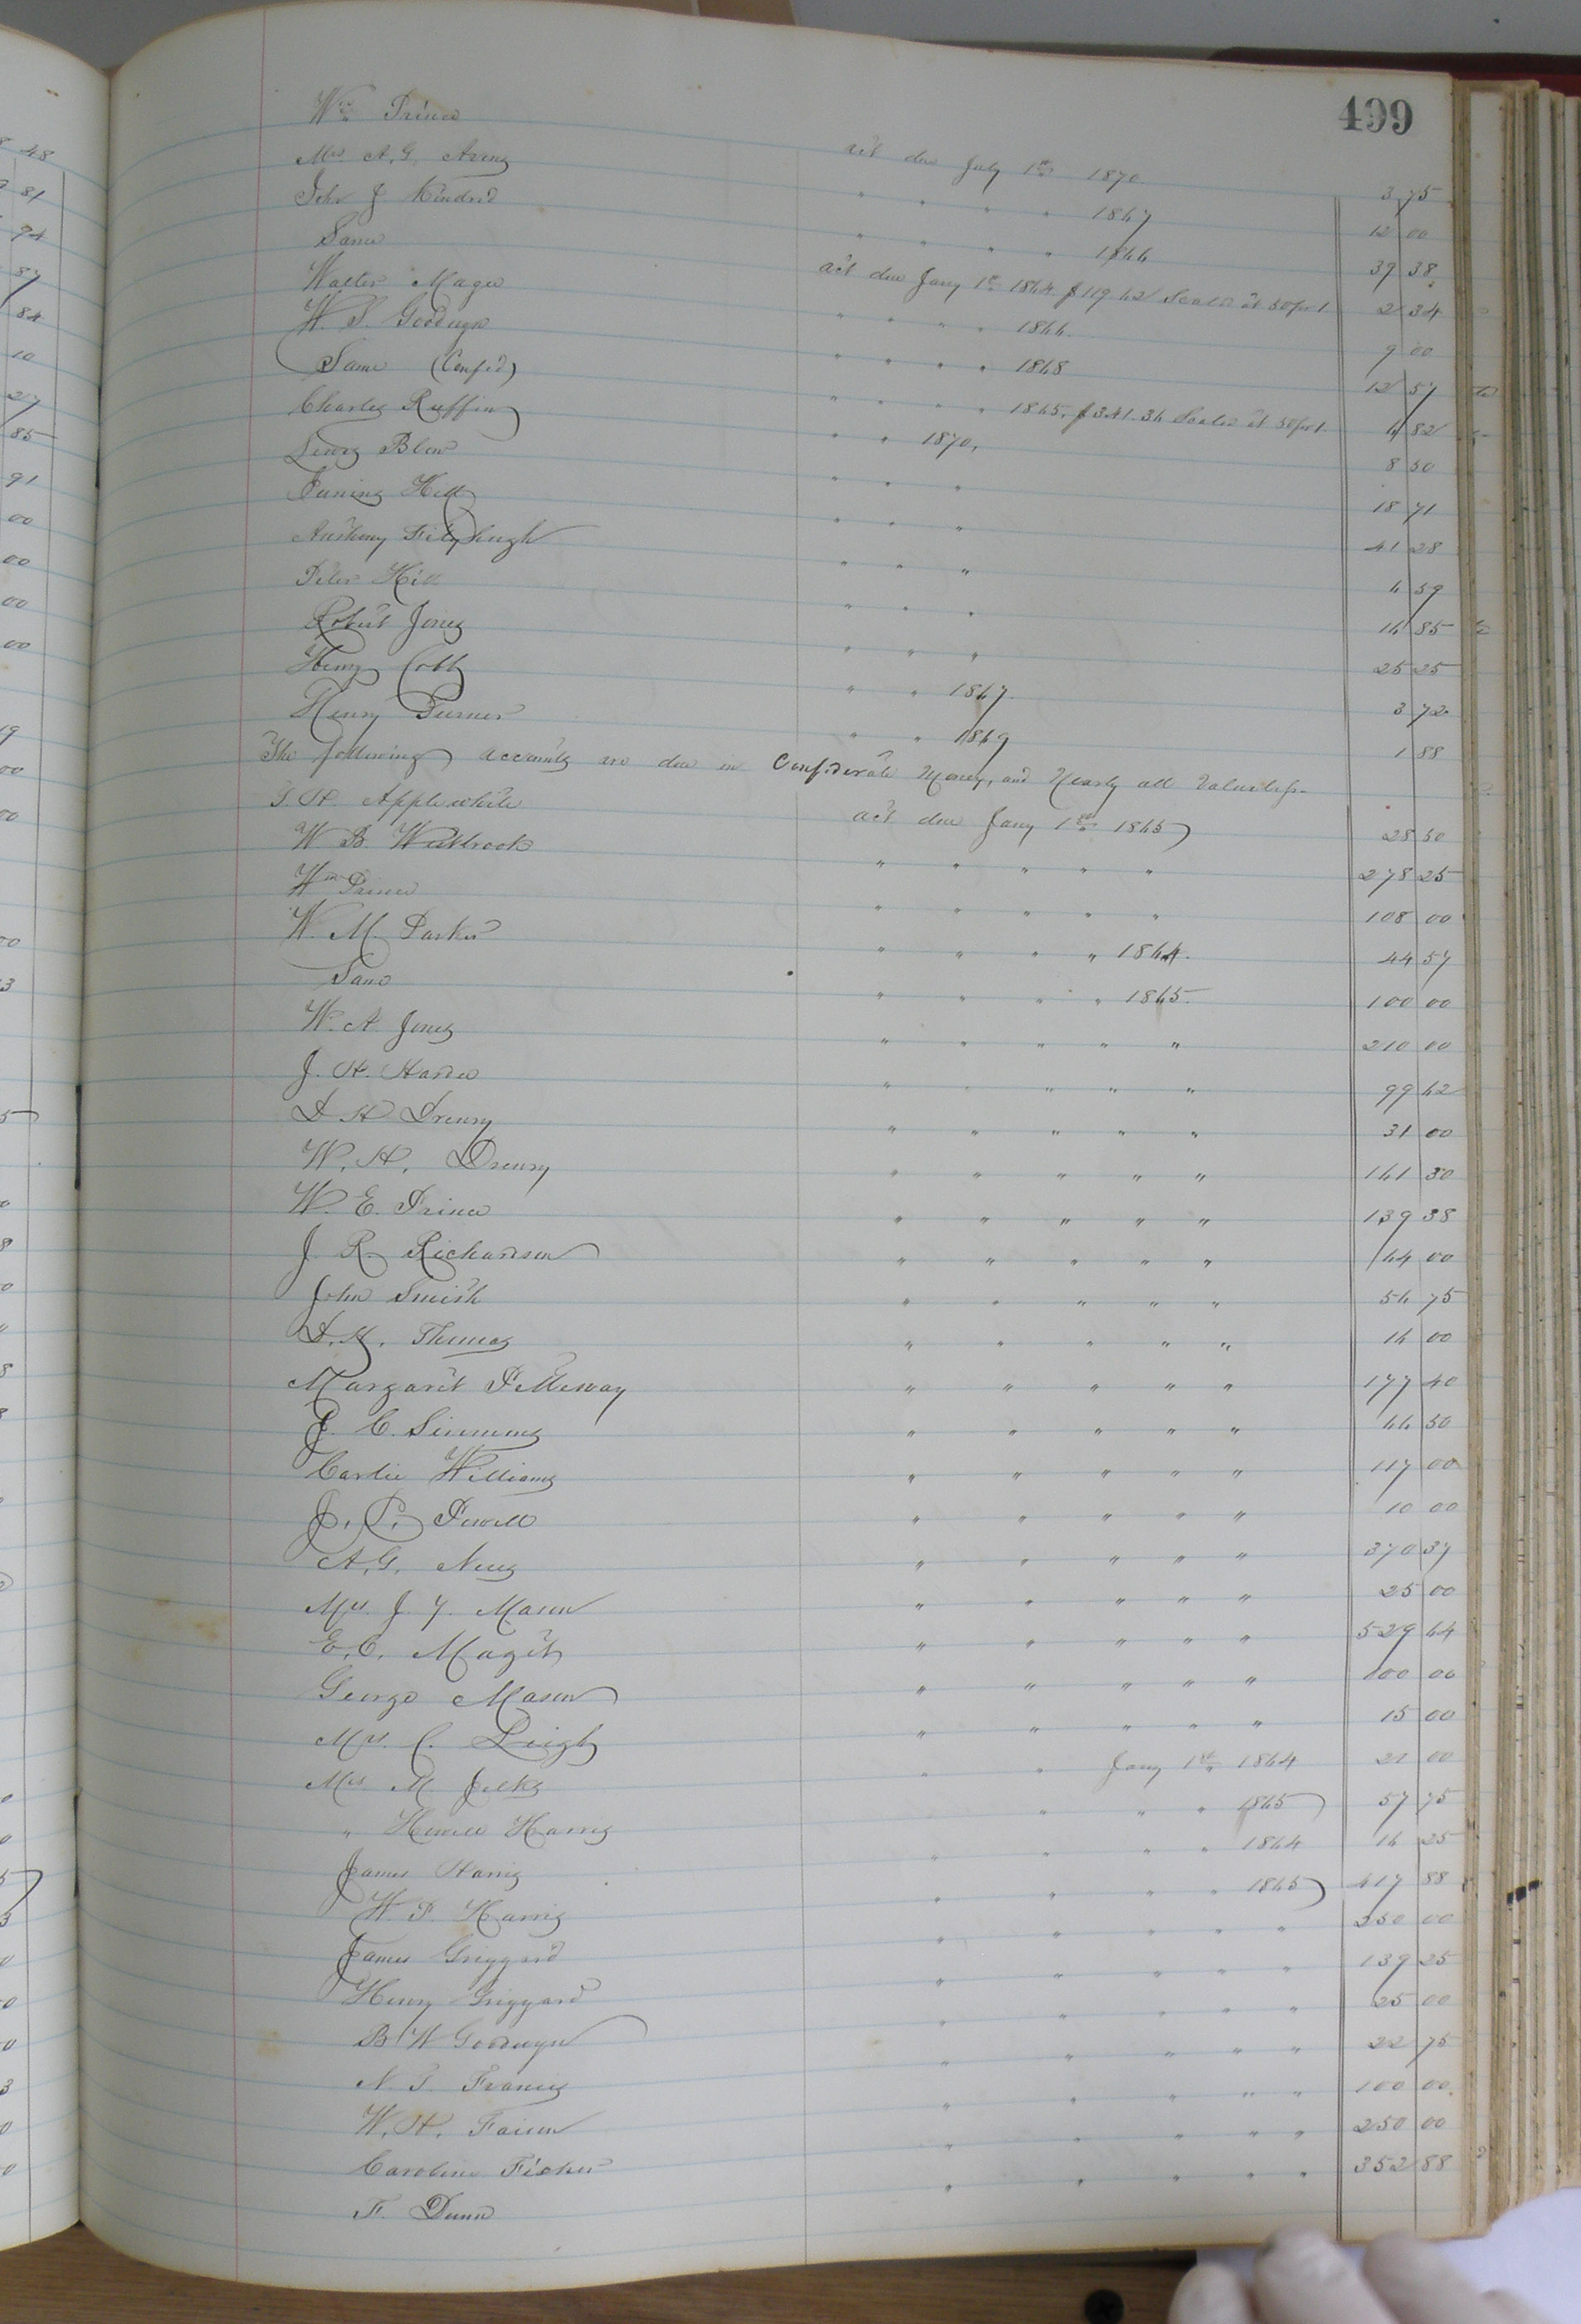 499
Wm Prince act due July 1st 1870 3 75
Mrs A. G. Arvins " " " " 1867 12 00
John J. Kindred " " " " 1866 39 38
Same act due Jany 1st 1864 $119 62 Scaled at 50 for 1 2 34
Walter Magee " " " " 1866. 9 00
W. S. Goodwyn " " " " 1868 12 57
Same (Conf'd) " " " " 1865. $341.36 Scaled at 50 for 1 6 82
Charles Ruffin " " 1870, 8 50
Lewis Blow " " " 18 71
Juning Hill " " " 41 28
Anthony Fitzhugh " " " 6 59
Peter Hill " " " 16 85
Robert Jones " " " 25 25
Henry Cobb " " 1867. 3 72
Henry Turner " " 1869 1 88
The following accounts are due in Confederate Money, and Nearly all Valueless.
T. H. Applewhite act due Jany 1st 1865 28 50
W B. Westbrook " " " " " 278 25
Wm Prince " " " " " 108 00
W. M. Parker " " " " 1864. 44 57
Same " " " " 1865. 100 00
W. A. Jones " " " " " 210 00
J. H. Harris " " " " " 99 62
D H Drewry " " " " " 31 00
W. H. Drewry " " " " " 161 30
W. E. Prince " " " " " 139 38
J. R. Richardson " " " " " 64 00
John Smith " " " " " 56 75
D. H. Thomas " " " " " 16 00
Margaret Pettway " " " " " 177 40
J. C. Simmons " " " " " 66 50
Carlie Williams " " " " " 117 00
J. P. Powell " " " " " 10 00
A. G. Nunez " " " " " 370 37
Mrs. J. Y. Mason " " " " " 25 00
E. C. Magett " " " " " 529 64
George Mason " " " " " 100 00
Mrs. C. Leigh " " " " " 15 00
Mrs M. Jelks " " Jany 1st 1864 21 00
" Howell Harris " " " 1865 57 75
James Harris " " " " 1864 16 25
W. F. Harris " " " " 1865 417 88
James Griggard " " " " " 250 00
Henry Griggard " " " " " 139 25
B W Goodwyn " " " " " 25 00
N. T. Francis " " " " " 22 75
W. H. Faison " " " " " 100 00
Caroline Ficker " " " " " 250 00
F. Dunn " " " " " 352 88